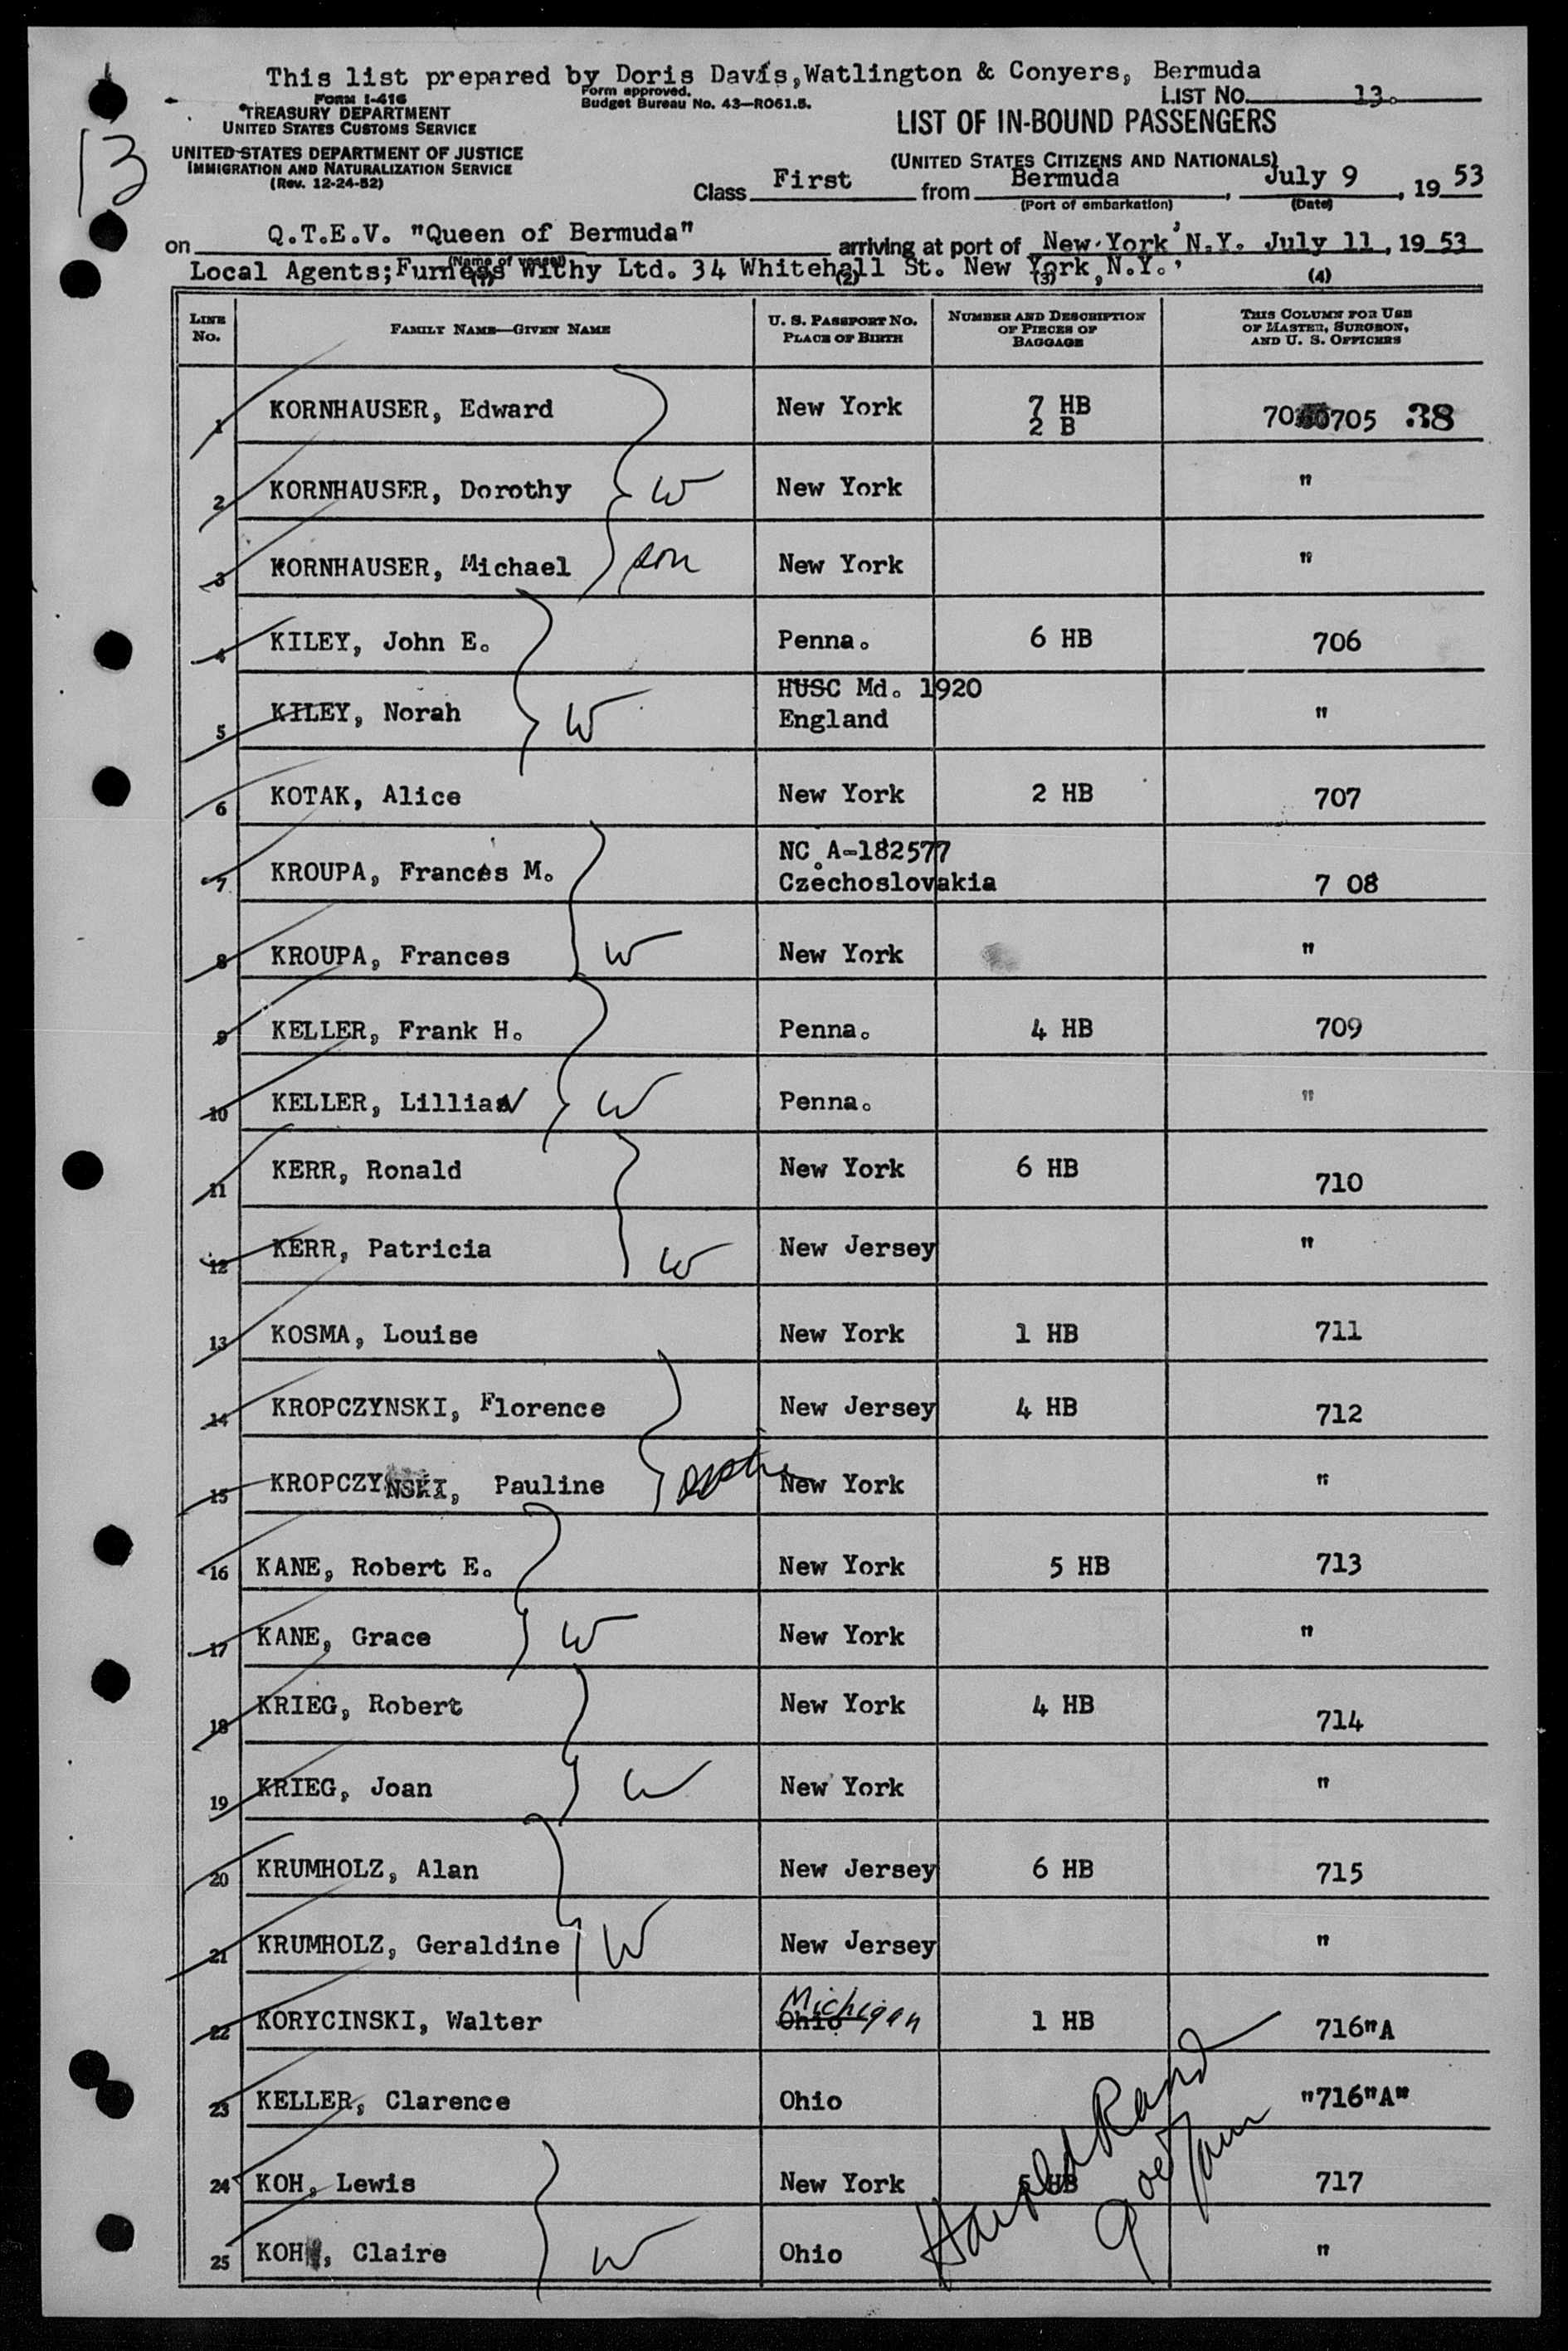 This list prepared by Doris Davis,Watlington & Conyers, Bermuda
FORM I-416
TREASURY DEPARTMENT
UNITED STATES CUSTOMS SERVICE
Form approved.
Budget Bureau No. 43—RO61.5.
LIST NO. 13.
LIST OF IN-BOUND PASSENGERS
13
UNITED STATES DEPARTMENT OF JUSTICE
IMMIGRATION AND NATURALIZATION SERVICE
(Rev. 12-24-52)
(UNITED STATES CITIZENS AND NATIONALS)
Class First from Bermuda, July 9, 19 53
(Port of embarkation) (Date)
on Q.T.E.V. "Queen of Bermuda" arriving at port of New York N.Y. July 11, 19 53
(Name of vessel)
Local Agents;Furness Withy Ltd. 34 Whitehall St. New York, N.Y.
(1) (2) (3) (4)
LINE No. FAMILY NAME—GIVEN NAME U. S. PASSPORT NO. PLACE OF BIRTH NUMBER AND DESCRIPTION OF PIECES OF BAGGAGE THIS COLUMN FOR USE OF MASTER, SURGEON, AND U. S. OFFICERS
1 KORNHAUSER, Edward New York 7 HB 2 B 705 38
2 KORNHAUSER, Dorothy W New York "
3 KORNHAUSER, Michael son New York "
4 KILEY, John E. Penna. 6 HB 706
5 KILEY, Norah W HUSC Md. 1920 England "
6 KOTAK, Alice New York 2 HB 707
7 KROUPA, Frances M. NC.A-182577 Czechoslovakia 7 08
8 KROUPA, Frances W New York "
9 KELLER, Frank H. Penna. 4 HB 709
10 KELLER, Lillian W Penna. "
11 KERR, Ronald New York 6 HB 710
12 KERR, Patricia W New Jersey "
13 KOSMA, Louise New York 1 HB 711
14 KROPCZYNSKI, Florence New Jersey 4 HB 712
15 KROPCZYNSKI, Pauline New York "
16 KANE, Robert E. New York 5 HB 713
17 KANE, Grace W New York "
18 KRIEG, Robert New York 4 HB 714
19 KRIEG, Joan W New York "
20 KRUMHOLZ, Alan New Jersey 6 HB 715
21 KRUMHOLZ, Geraldine W New Jersey "
22 KORYCINSKI, Walter Ohio Michigan 1 HB 716"A
23 KELLER, Clarence Ohio "716"A"
24 KOH, Lewis New York 5 HB 717
25 KOH, Claire W Ohio "
Harold Rand